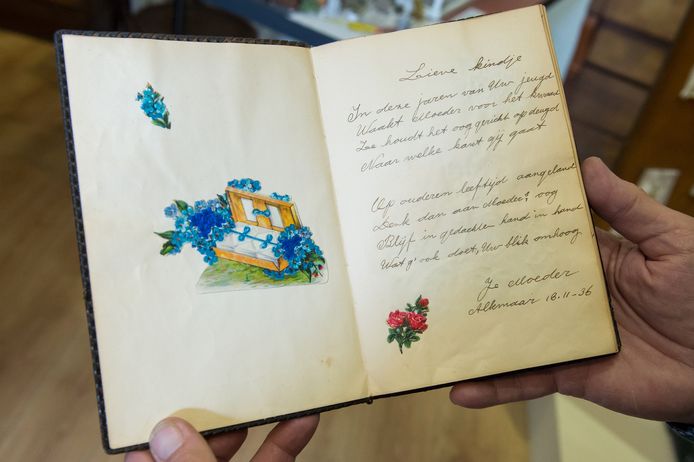 Lieve kindje
In deze jaren van Uw jeugd
Waakt Moeder voor het kwaad
Ze houdt het oog gericht op deugd
Naar welke kant gij gaat
Op ouderem leeftijd aangeland
Denk dan aan Moeder's oog
Blijf in gedachten hand in hand
Wat g' ook doet, Uw blik omhoog.
Je Moeder
Alkmaar 18-11-36